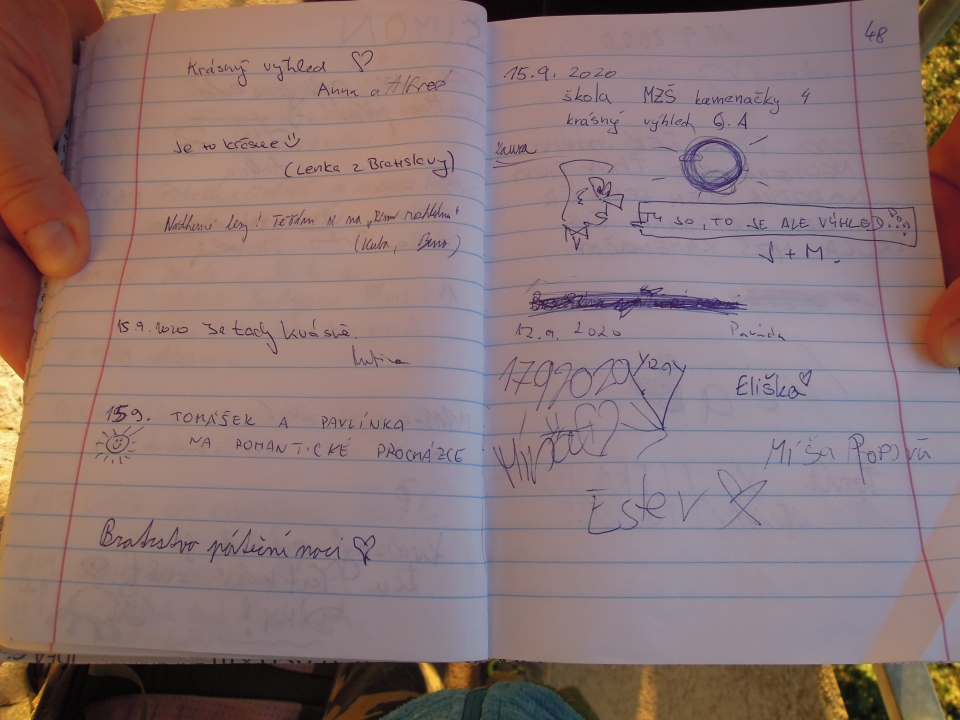 Krásný výhled
Anna a Alfred
Je to krásné
(Lenka z Bratislavy)
Nádherné lesy! Těším se na
(Kuba, Brno)
15 9. 2020 Je tady krásně.
159. TOMÁŠEK A PAVLÍNKA
NA ROMANTICKÉ PROCHÁZCE
Bratrstvo páteční noci
48
15.9. 2020
škola MZŠ kamenačky 4
krásný výhled 6.A
Laura
TY JO, TO JE ALE VÝHLED...
J + M.
12.9. 2020
Eliška
Míša Popová
Ester